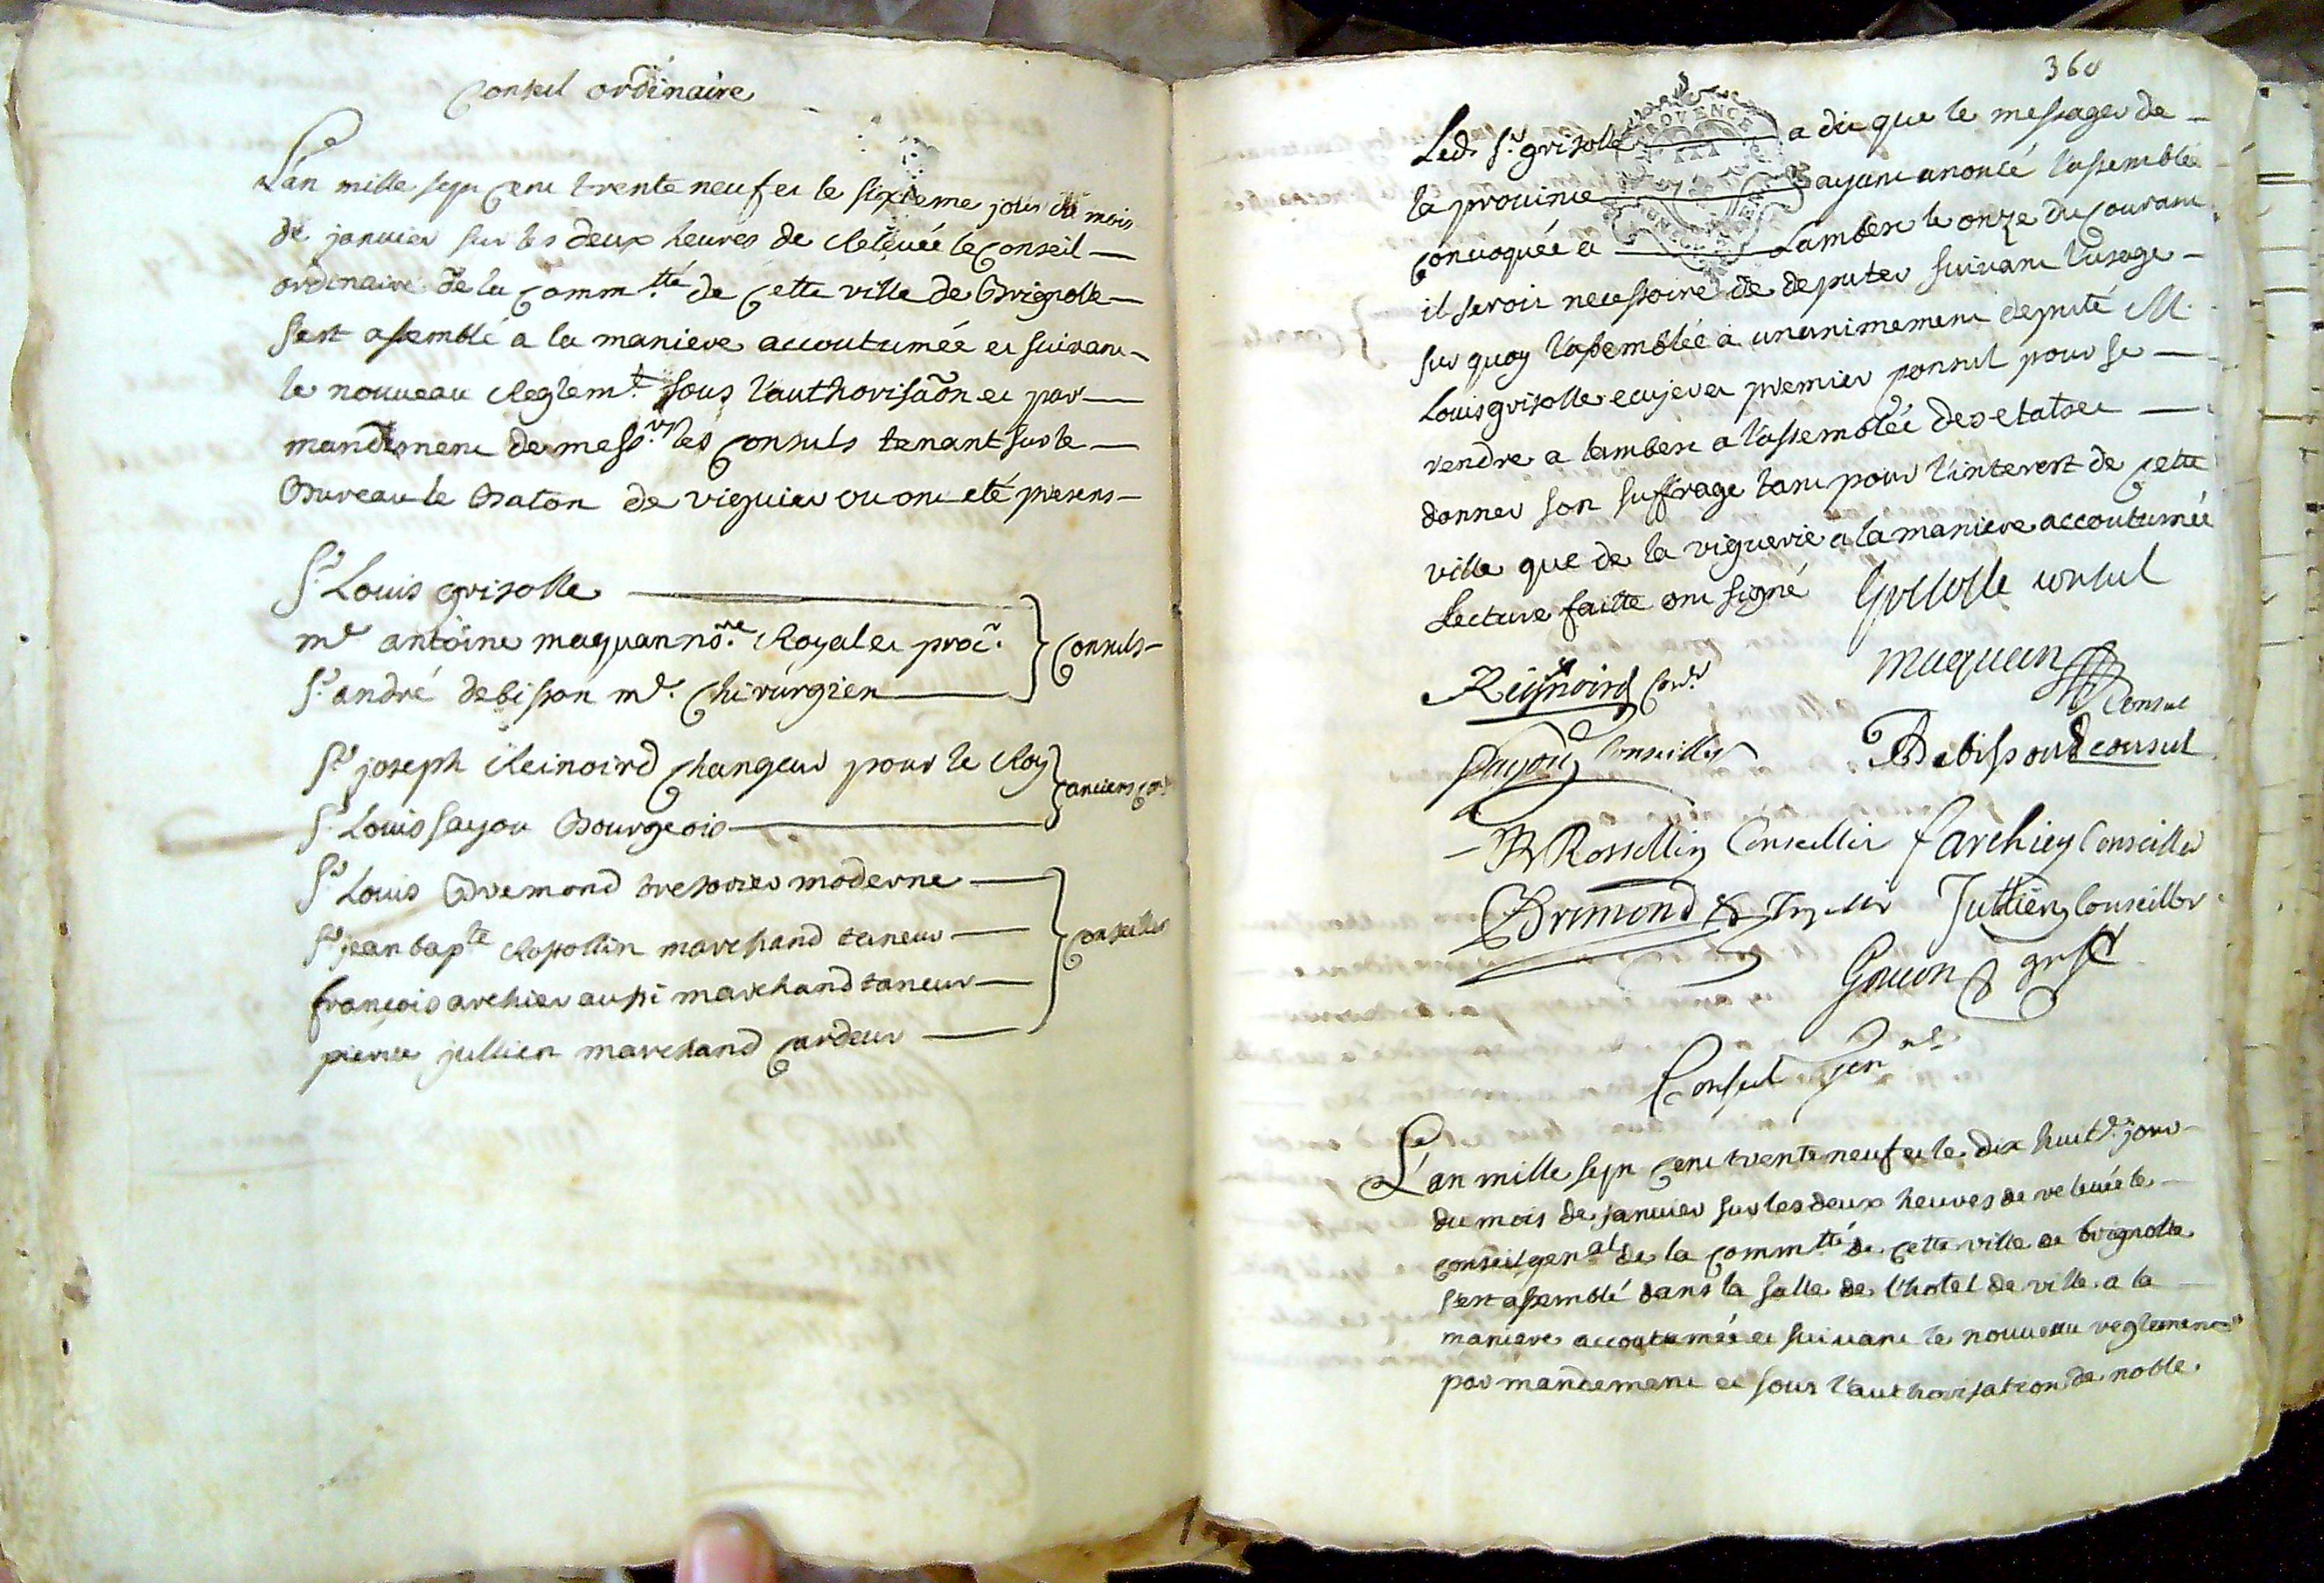 Conseil ordinaire
L'an mille sept cent trente neuf et le sixieme jour du mois
de janvier sur les deux heures de Relevée le Conseil
ordinaire de la Comm.tté de Cette ville de Brignolle
s'est assemblé a la maniere accoutumée et suivant
le nouveau Reglem.t sous l'authorisãon et par
mandement de mess.rs les Consuls tenant sur le
Bureau le Baton de viguier ou ont eté presens
S.r Louis grisolle
m.e antoine maquan no.re Royal et proc̃.
S.r andré debisson m.e Chirurgien
Consuls
S.r joseph Reinoird Changeur pour le Roy
S.r Louis sayou Bourgeois
anciens Con.
S.r Louis Bremond tresorier moderne
S.r jean bap.te Rossollin marchand taneur
françois archier aussi marchand taneur
pierre jullien marchand Cardeur
Conseillers
360
PROVENCE
Led. S.r grisolle a dit que le messager de
la province ayant anoncé l'assemblée
Convoquée a Lambesc le onze du Courant
il seroit necessaire de deputer suivant l'usage
sur quoy l'assemblée a unanimement deputé M.
Louis grisolle ecuyer et premier Consul pour se
rendre a lambesc a l'assemblée des etats et
donner son suffrage tant pour l'interest de Cette
ville que de la viguerie a la maniere accoutumée
Lecture faitte ont signé Grisolle consul
Reisnoird Con.er maquan Consul
Sayou Conseiller Debisson consul
JB Rossollin Conseillier f archier Conseiller
Bremond Jullien Conseiller
Goujon gref
Conseil Gen.al
L'an mille sept Cent trente neuf et le dix huit.e jour
du mois de janvier sur les deux heures de relevée le
Conseil gen.al de la Comm.tté de Cette ville de brignolle
s'est assemblé dans la salle de l'hotel de ville a la
maniere accoutumée et suivant le nouveau reglement
par mandement et sous l'authorisation de noble